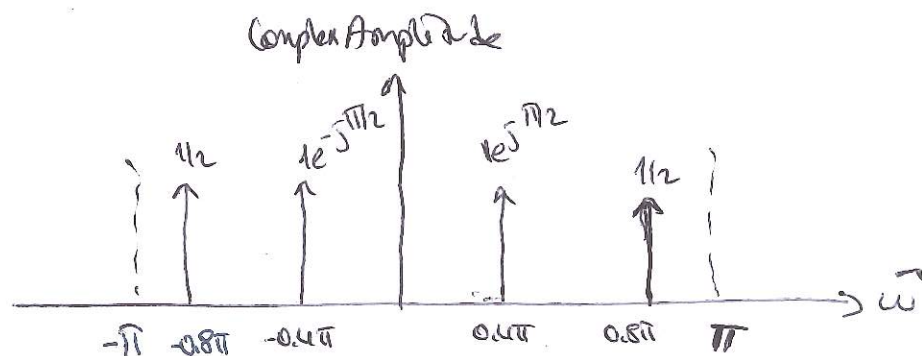 Complex Amplitude
1/2 1e^-jπ/2 1e^jπ/2 1/2
-π -0.8π -0.4π 0.4π 0.8π π ω